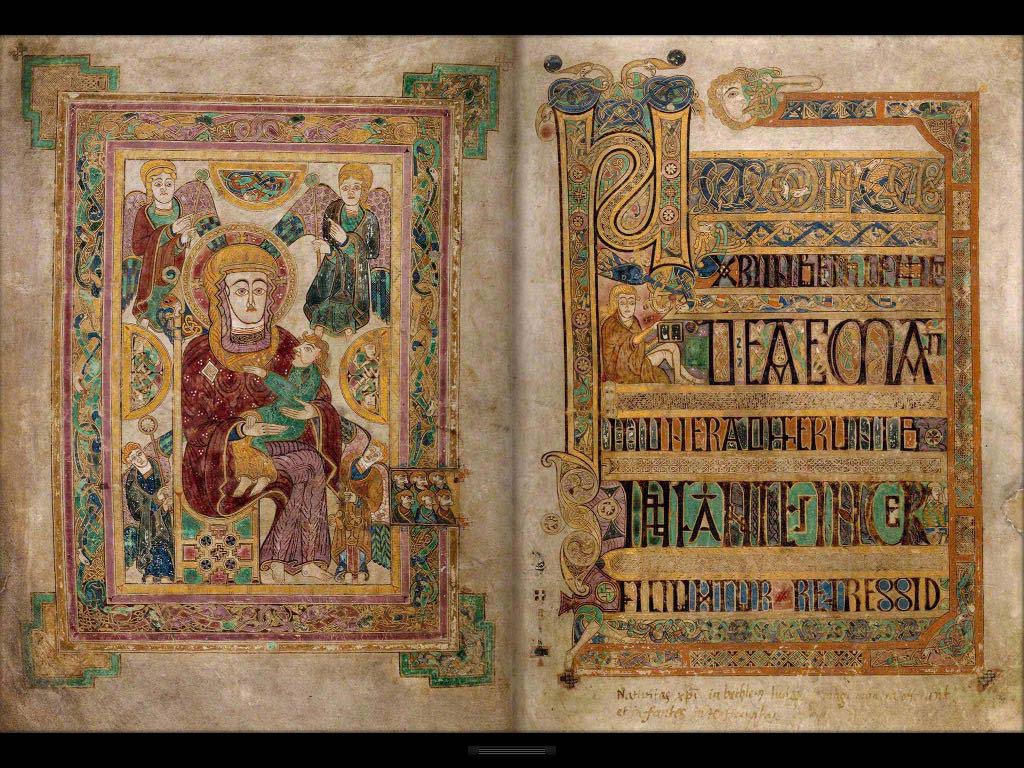 NATIVITAS
XPI IN BETHLEM
IUDEAE MA
GI MUNERA OFFERUNT
ET INFANTES INTER
FICIUNTUR REGRESSIO
Nativitas xpi in bethlem Iudae magi munera offerunt
et infantes interficiuntur